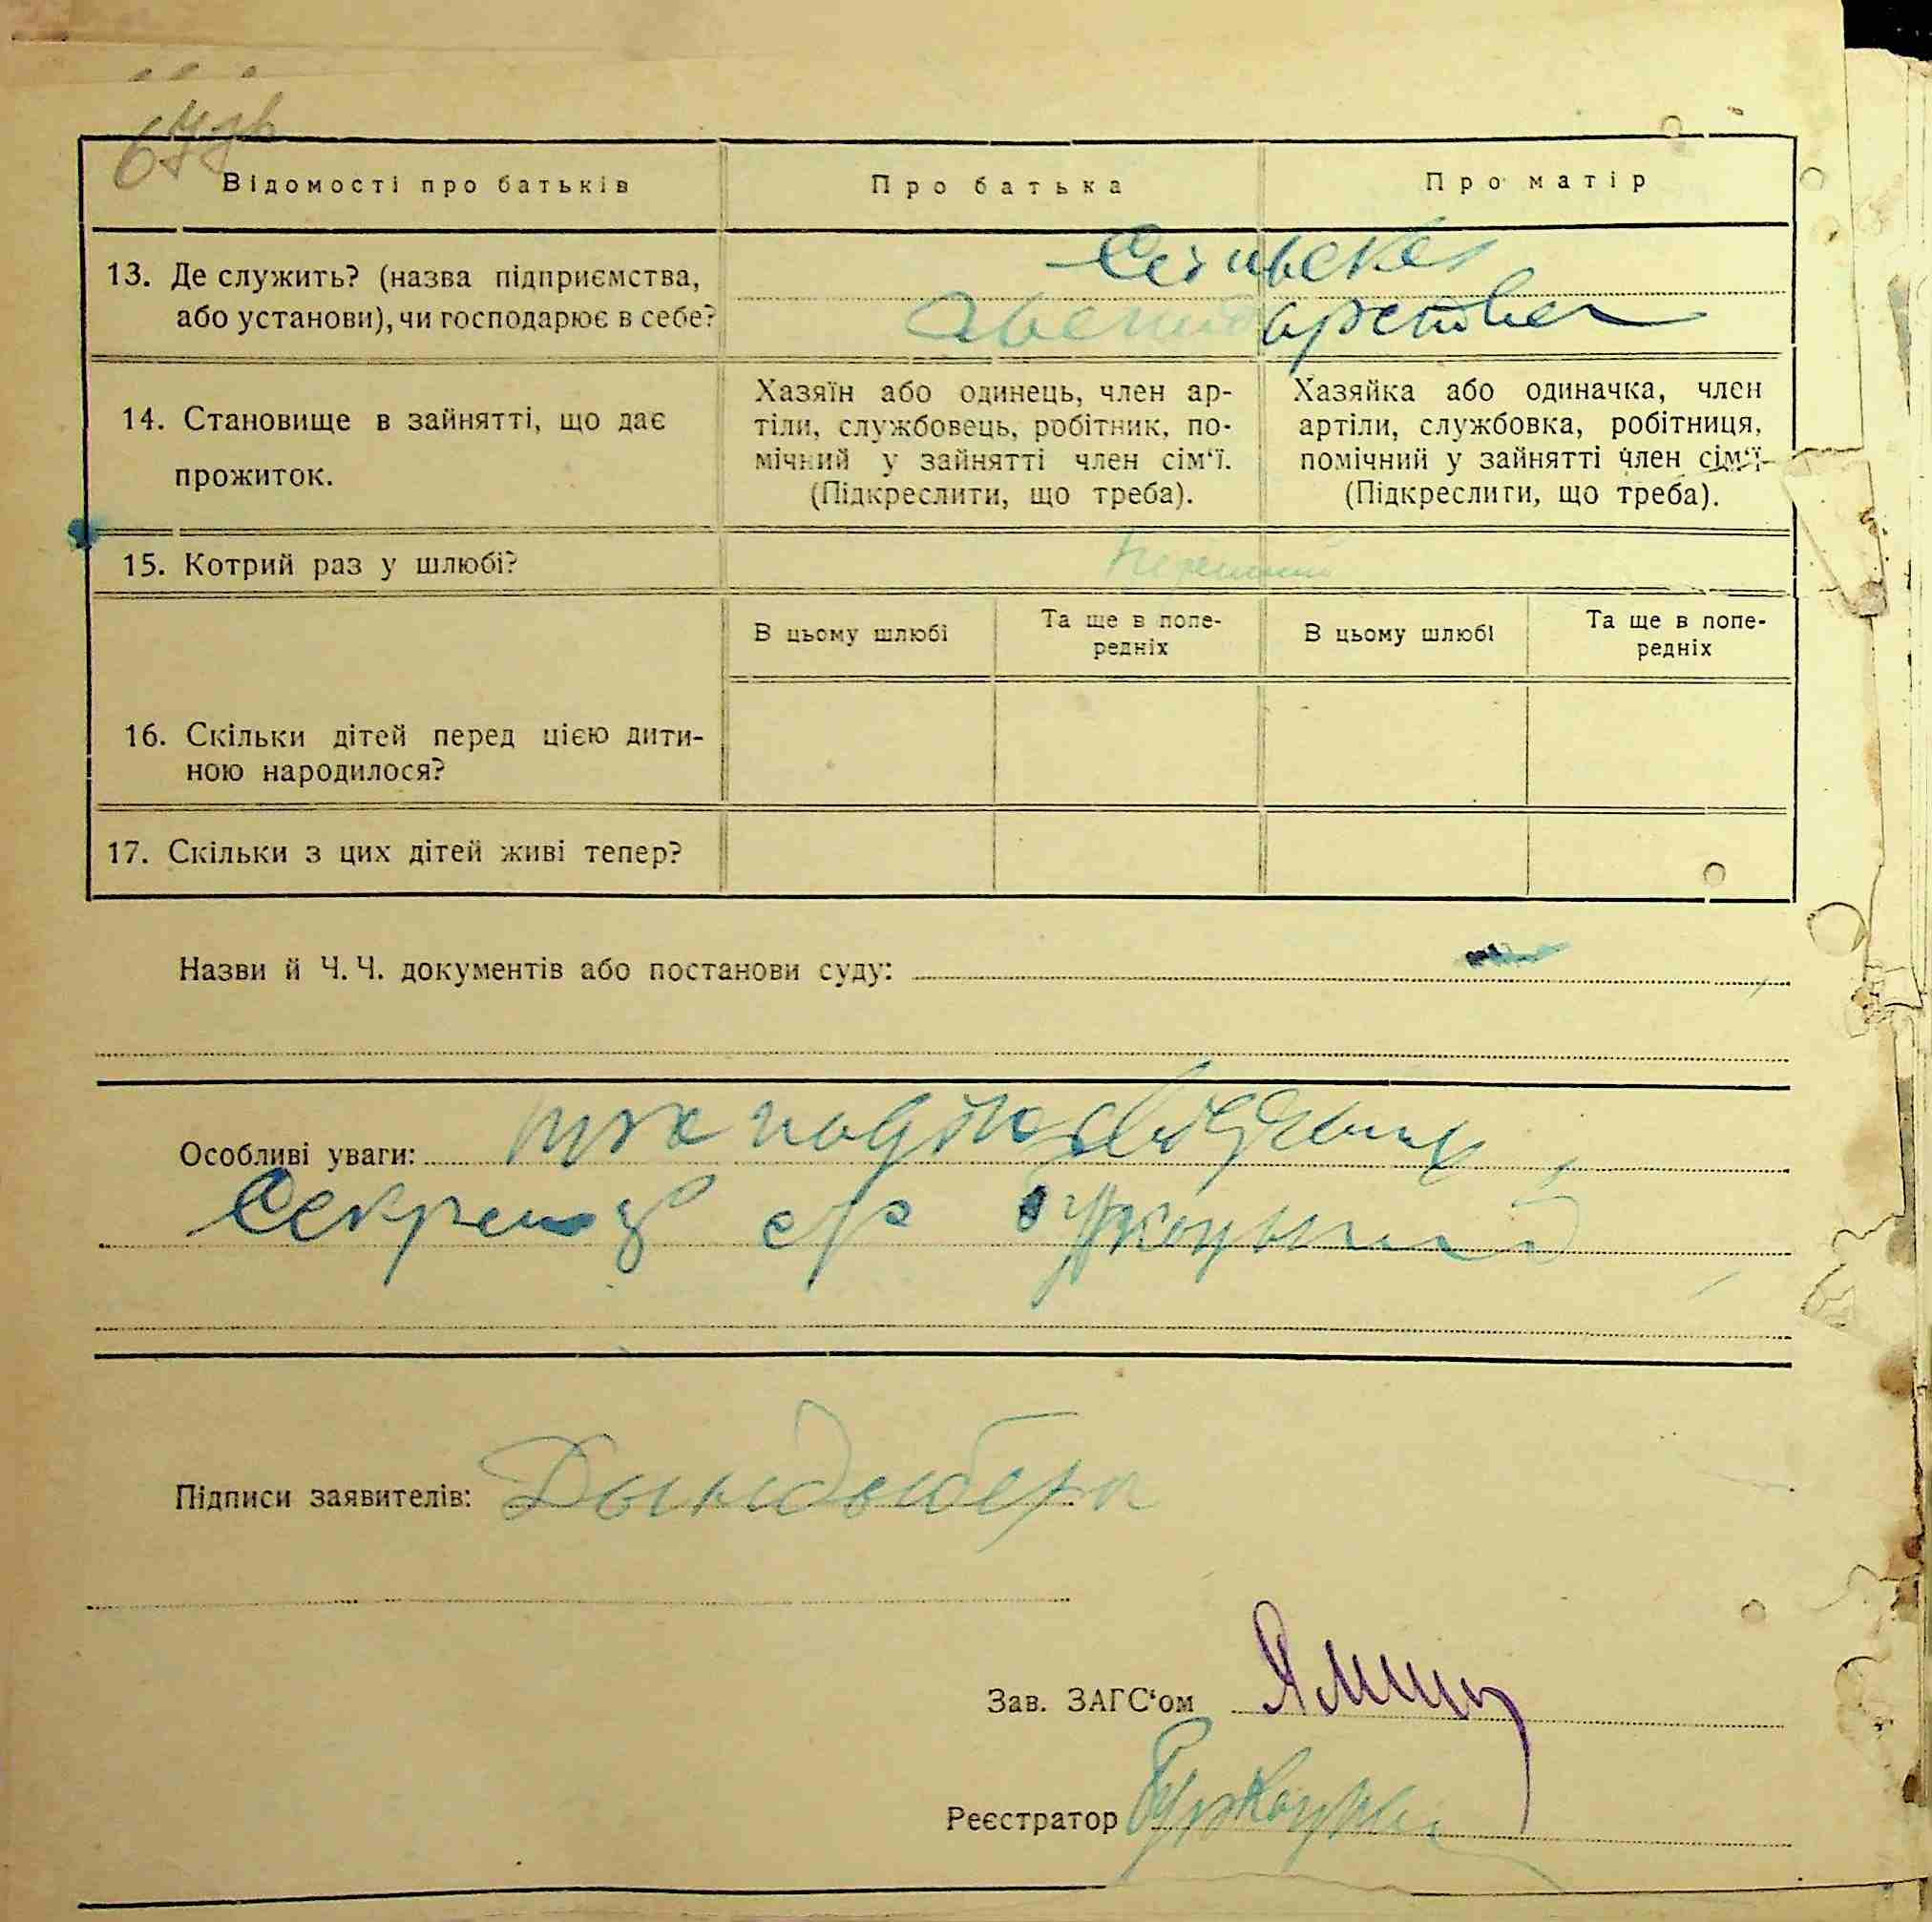 67зв
Відомості про батьків
Про батька
Про матір
13. Де служить? (назва підприємства,
або установи), чи господарює в себе?
Сільське
14. Становище в зайнятті, що дає
прожиток.
Хазяїн або одинець, член ар-
тіли, службовець, робітник, по-
мічний у зайнятті член сім‘ї.
(Підкреслити, що треба).
Хазяйка або одиначка, член
артіли, службовка, робітниця,
помічний у зайнятті член сім‘ї
(Підкреслити, що треба).
15. Котрий раз у шлюбі?
В цьому шлюбі
Та ще в попе-
редніх
В цьому шлюбі
Та ще в попе-
редніх
16. Скільки дітей перед цією дити-
ною народилося?
17. Скільки з цих дітей живі тепер?
Назви й Ч. Ч. документів або постанови суду:
Особливі уваги:
Секретар с/р
Підписи заявителів:
Зав. ЗАГС‘ом
Реєстратор